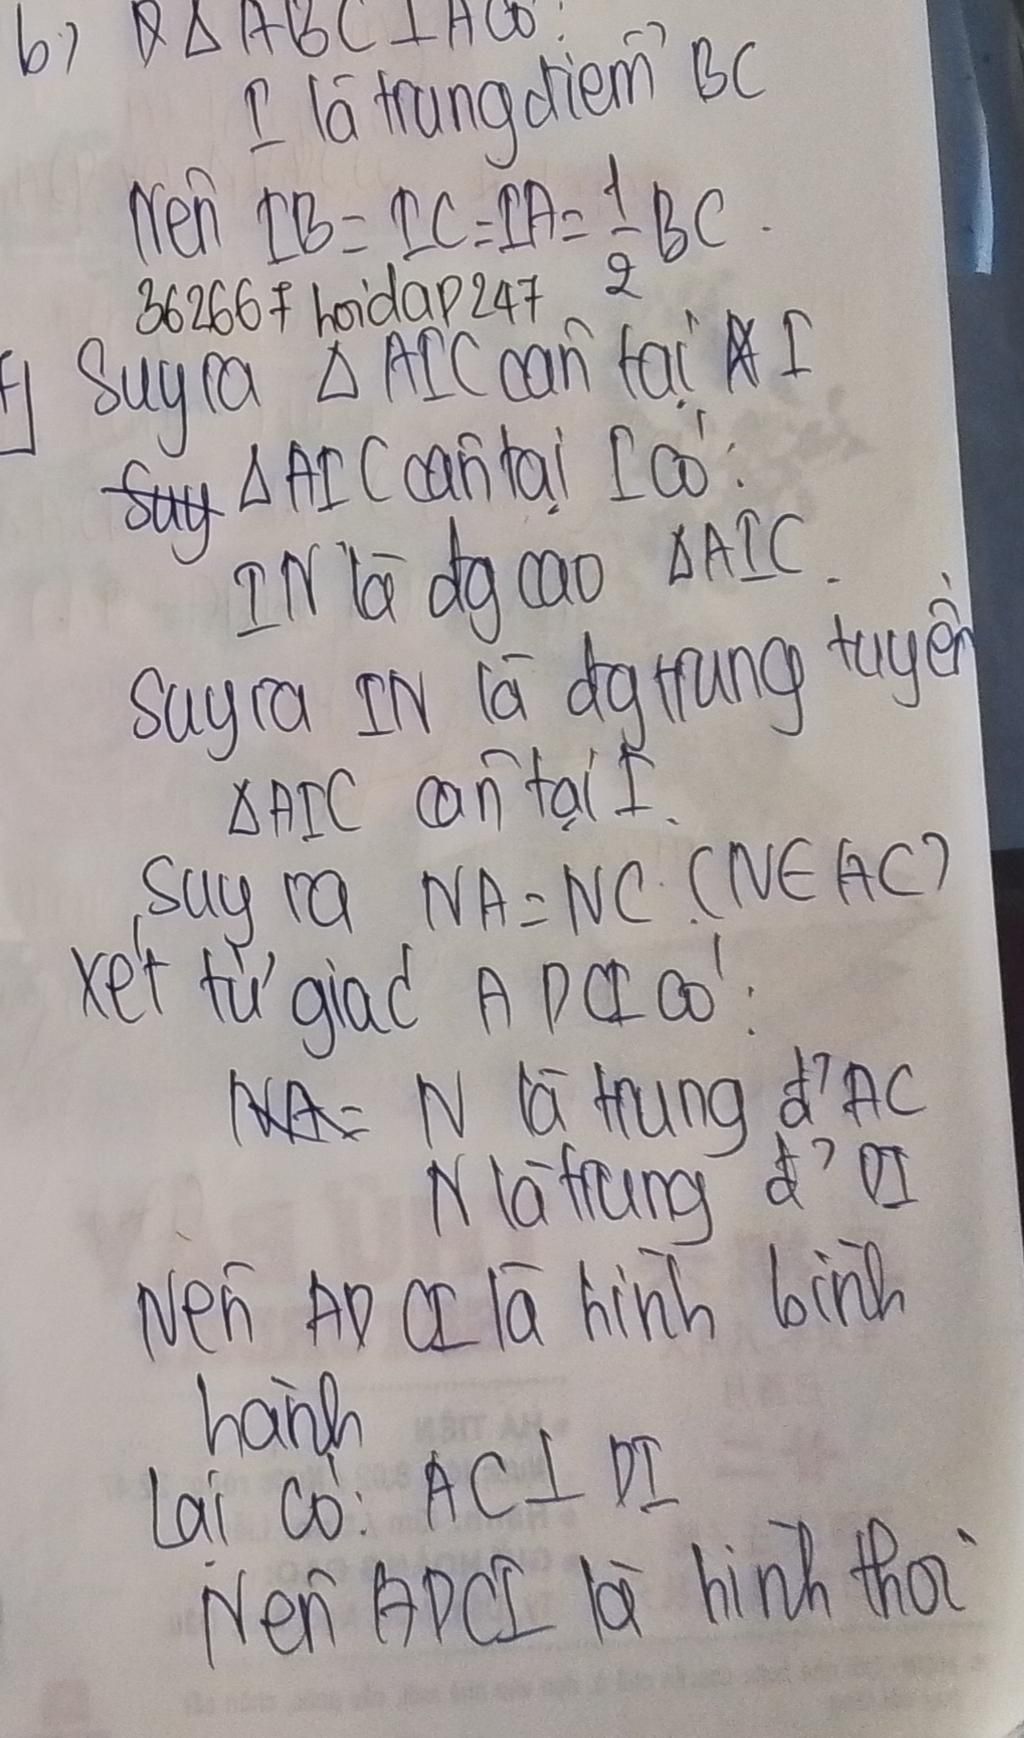 b) Δ ABC ⊥ A có:
I là trung điểm BC
Nên IB = IC = IA = 1/2 BC.
362667 hoidap247
Suy ra Δ AIC cân tại I
Suy Δ AIC cân tại I có:
IN là đg cao Δ AIC.
Suy ra IN là đg trung tuyến
Δ AIC cân tại I.
Suy ra NA = NC. (N ∈ AC)
Xét tứ giác ADCI có:
NA = N là trung đ' AC
N là trung đ' DI
Nên ADCI là hình bình
hành
Lại có: AC ⊥ DI
Nên ADCI là hình thoi